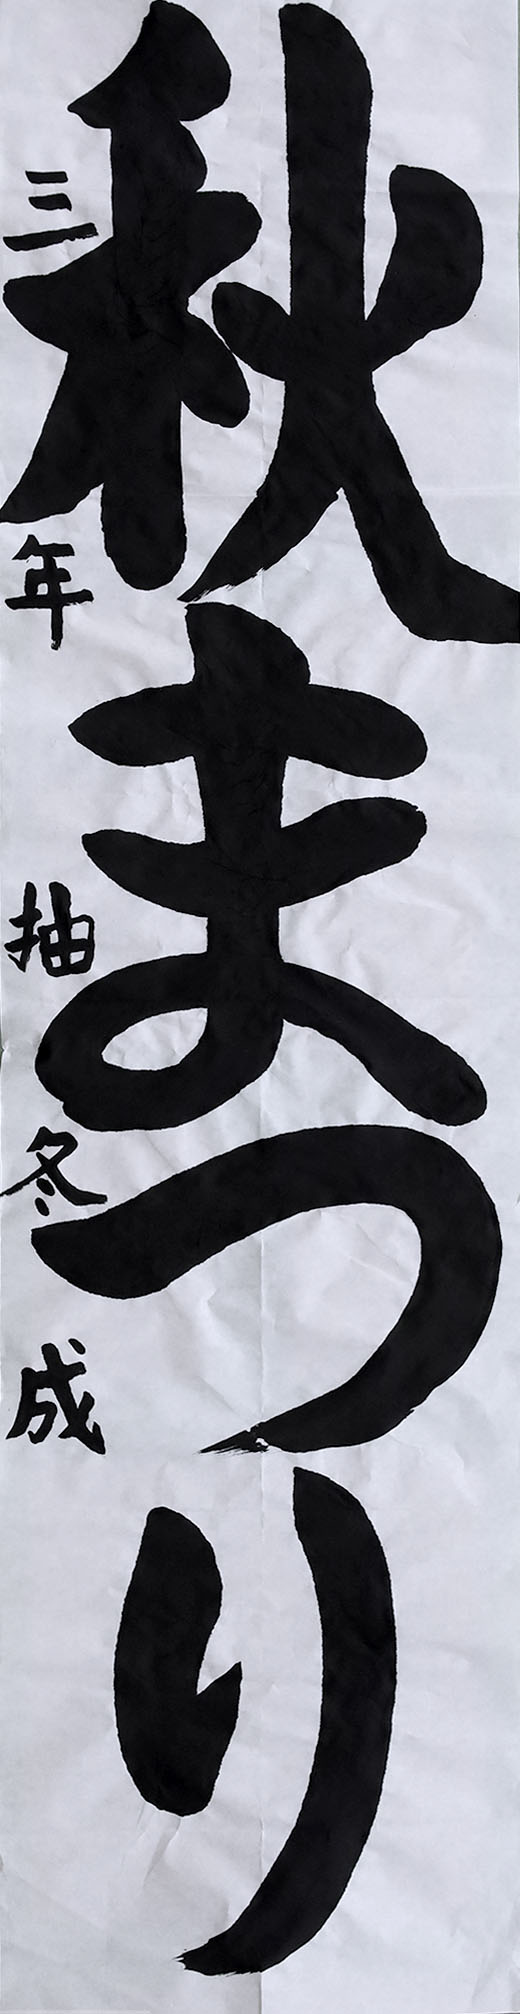 秋まつり
三年 抽冬成